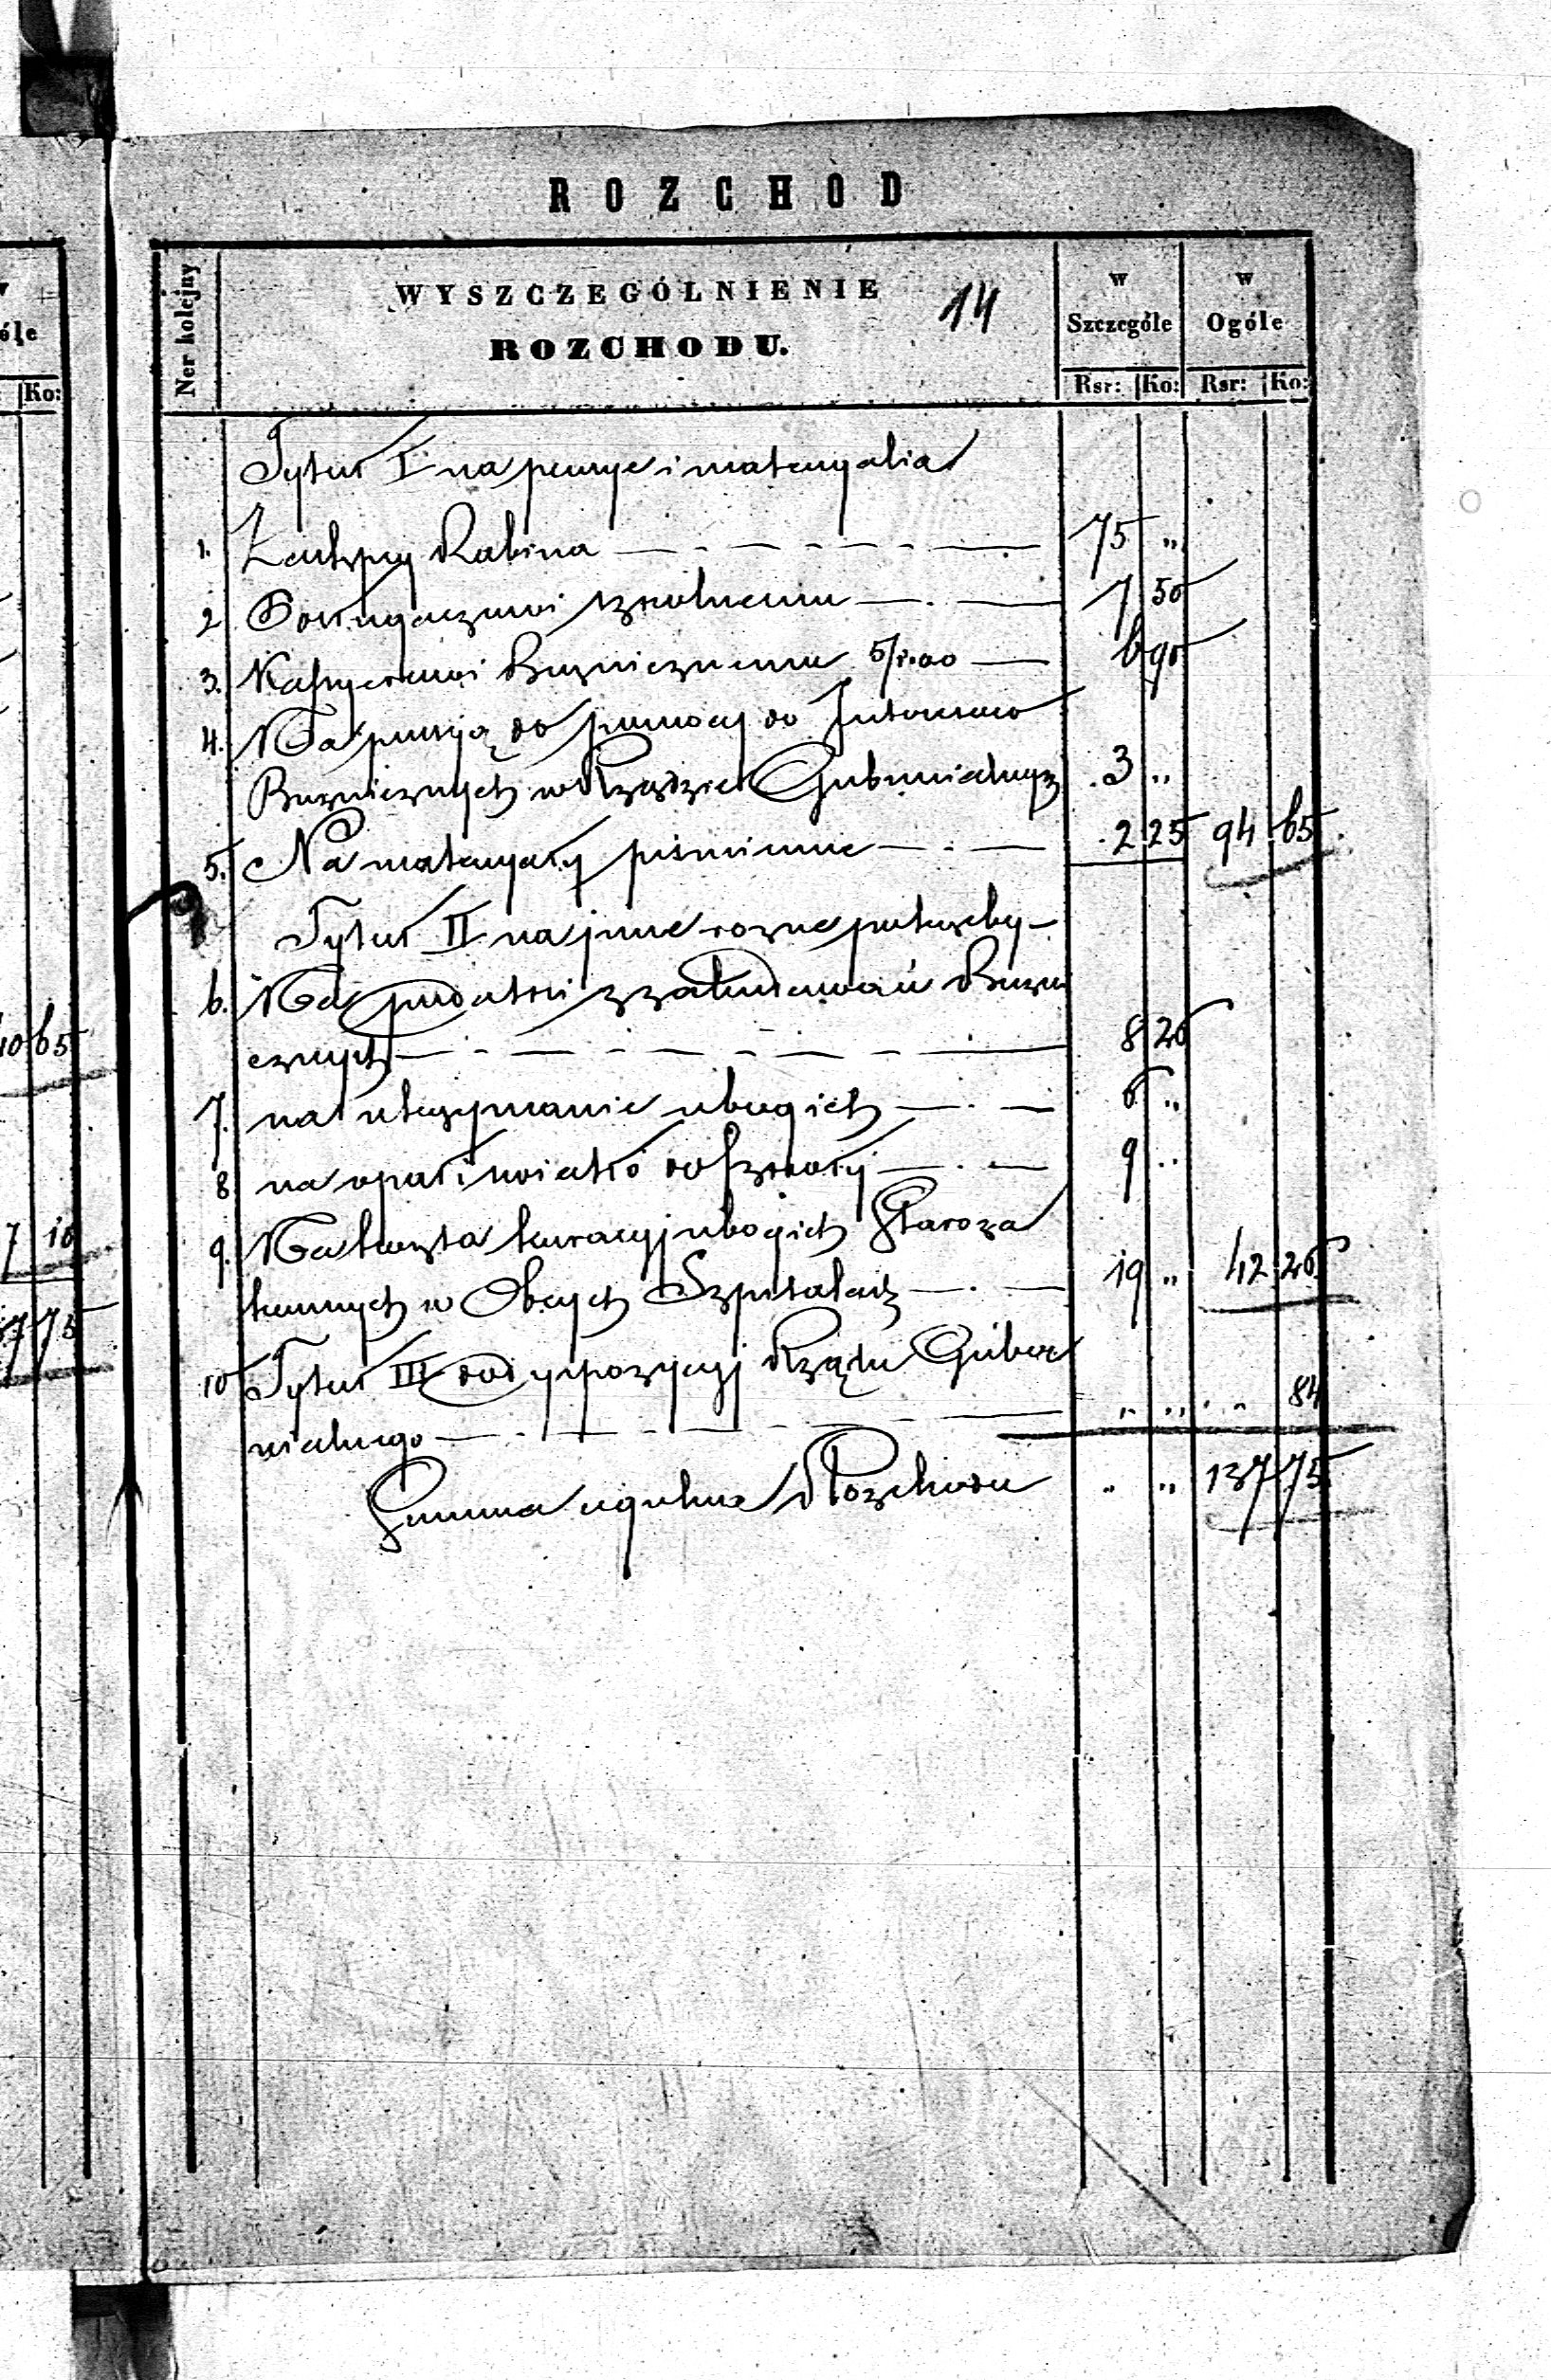 óle
Ko:
10 65
7 10
37 75
ROZCHOD
Ner kolejny
WYSZCZEGÓLNIENIE 14
ROZCHODU.
w Szczególe
w Ogóle
Rsr: Ko: Rsr: Ko:
Tytuł I na pensye i materyalia
1. Zastępcy Rabina 75 „
2 szkolnemu 7 50
3. Kassyerowi Bużnicznemu 5/100 6 90
4. Na pensyą do pomocy do
Bużnicznych w Rządzie Gubernialnym 3 „
5. Na materyały piśmienne 2 25 94 65
Tytuł II na inne rozne potrzeby
6. Na podatki z zabudowań Bużni
cznych 8 26
7. na utrzymanie ubogich 6 „
8 na opał i światło do szkoły 9 „
9. Na koszta kuracyi ubogich Staroza
konnych w Obcych Szpitalach 19 „ 42 26
10 Tytuł III do dyspozycyi Rządu Guber
nialnego „ „ „ 84
Summa ogulna Rozchodu „ „ 137 75